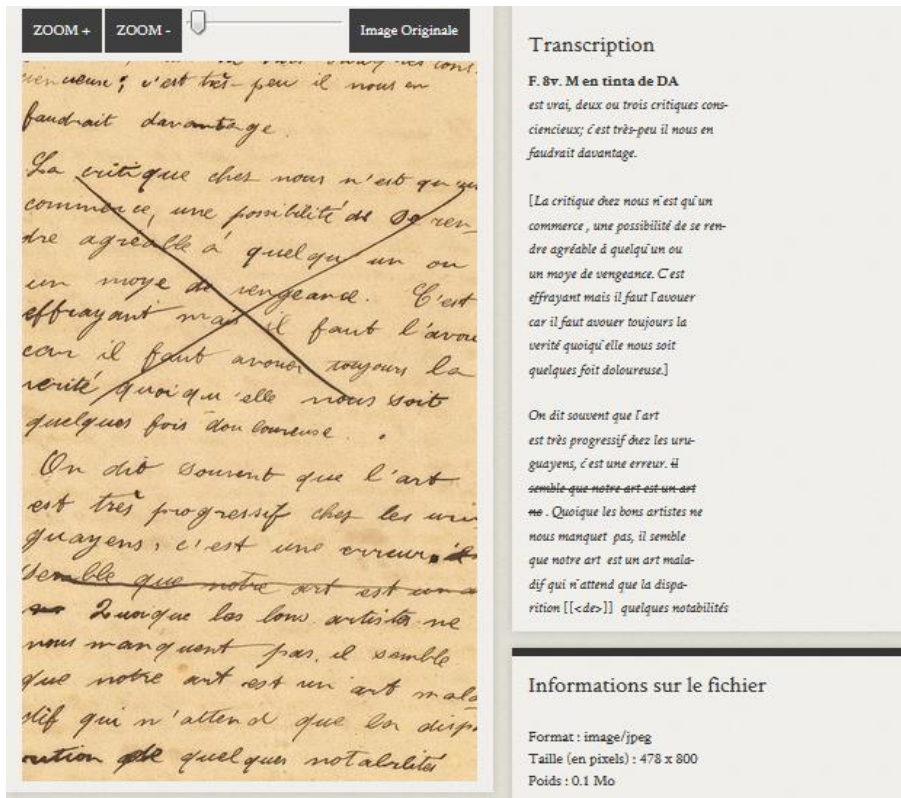 ZOOM +
ZOOM -
Image Originale
cons-
ciencieux; c'est très-peu il nous en
faudrait davantage.
La critique chez nous n'est qu'un
commerce, une possibilité de se ren-
dre agréable à quelqu'un ou
un moye de vengeance. C'est
effrayant mais il faut l'avou
car il faut avouer toujours la
verité quoiqu'elle nous soit
quelques fois douloureuse.
On dit souvent que l'art
est très progressif chez les uru
guayens, c'est une erreur. il
semble que notre art est un a
ne Quoique les bons artistes ne
nous manquent pas, il semble
que notre art est un art mala
dif qui n'attend que la dispa
rition de quelques notabilités
Transcription
F. 8v. M en tinta de DA
est vrai, deux ou trois critiques cons-
ciencieux; c'est très-peu il nous en
faudrait davantage.
[La critique chez nous n'est qu'un
commerce , une possibilité de se ren-
dre agréable à quelqu'un ou
un moye de vengeance. C'est
effrayant mais il faut l'avouer
car il faut avouer toujours la
verité quoiqu'elle nous soit
quelques foit doloureuse.]
On dit souvent que l'art
est très progressif chez les uru-
guayens, c'est une erreur. il
semble que notre art est un art
ne . Quoique les bons artistes ne
nous manquet pas, il semble
que notre art est un art mala-
dif qui n'attend que la dispa-
rition [[<de>]] quelques notabilités
Informations sur le fichier
Format : image/jpeg
Taille (en pixels) : 478 x 800
Poids : 0.1 Mo